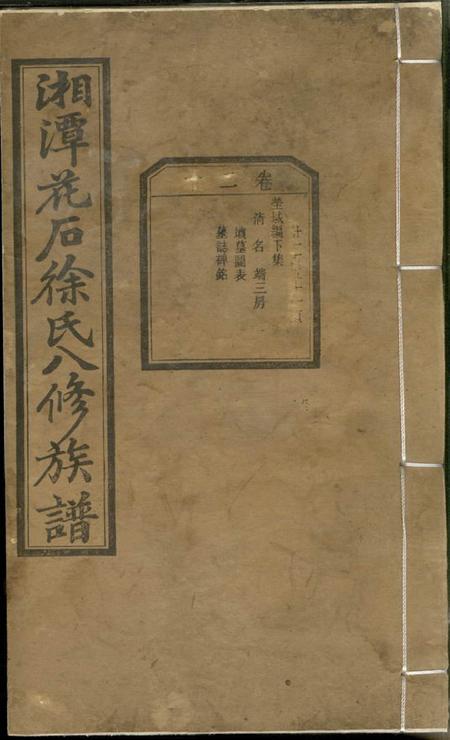 湘潭花石徐氏八修族譜
卷二十
塋域編下集
清名端三房
墳墓圖表
墓誌碑銘